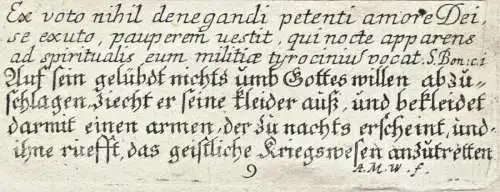 Ex voto nihil denegandi petenti amore Dei,
se exuto, pauperem uestit, qui nocte apparens
ad spiritualis eum militiæ tyrociniũ vocat. S. Bon: c. i
Auf sein gelübdt nichts umb Gottes willen abzu-
schlagen, ziecht er seine kleider auß, und bekleidet
darmit einen armen, der zu nachts erscheint, und
ihne ruefft, das geistliche Kriegswesen anzutretten
9 A. M. W. f.